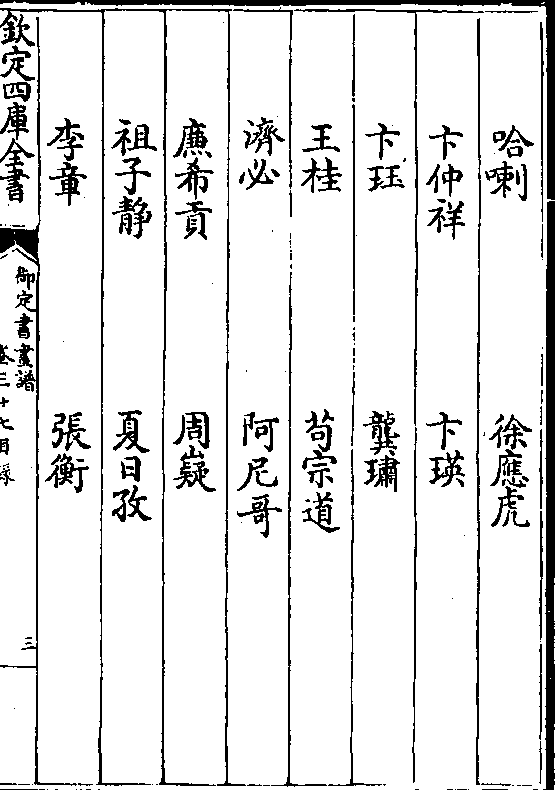 哈喇 徐應虎
卞仲祥 卞瑛
卞珏 龔璛
王桂 苟宗道
濟必 阿尼哥
廉希貢 周巍
祖子靜 夏日孜
李章 張衡
欽定四庫全書
御定書畫譜
卷三十七目錄
三